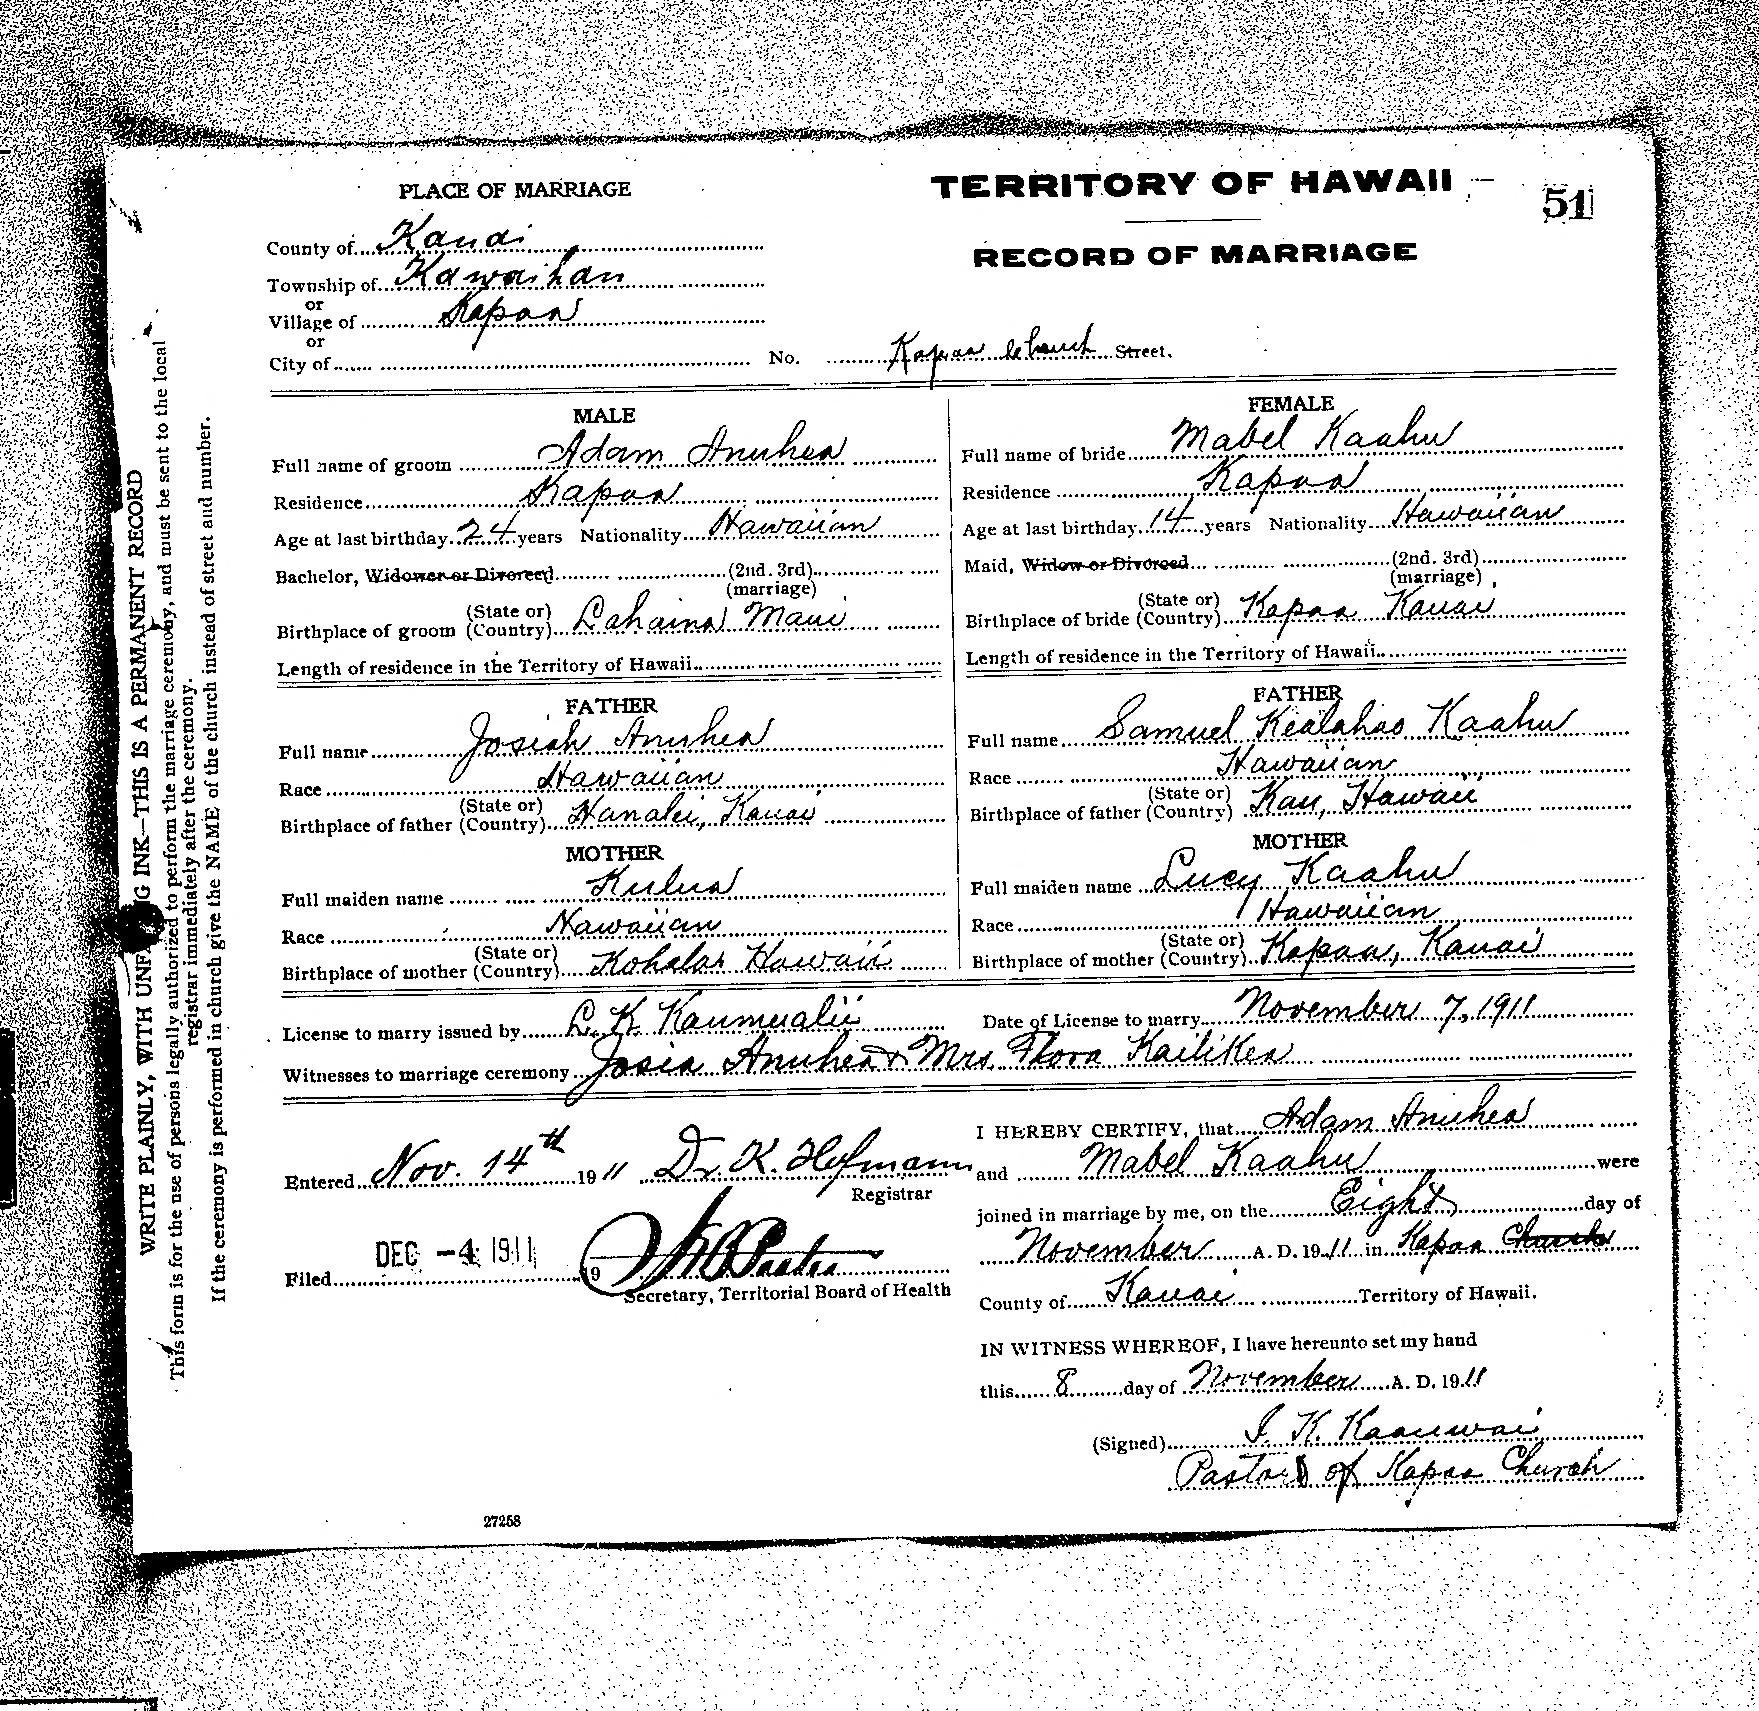 PLACE OF MARRIAGE
TERRITORY OF HAWAII
51
RECORD OF MARRIAGE
County of Kauai
Township of Kawaihau
or
Village of Kapaa
or
City of No. Kapaa Church Street.
MALE
Full name of groom Adam Anuhea
Residence Kapaa
Age at last birthday 24 years Nationality Hawaiian
Bachelor, Widower or Divorced (2nd. 3rd)
(marriage)
Birthplace of groom (State or) (Country) Lahaina Maui
Length of residence in the Territory of Hawaii
FEMALE
Full name of bride Mabel Kaahu
Residence Kapaa
Age at last birthday 14 years Nationality Hawaiian
Maid, Widow or Divorced (2nd. 3rd)
(marriage)
Birthplace of bride (State or) (Country) Kapaa Kauai
Length of residence in the Territory of Hawaii
FATHER
Full name Josiah Anuhea
Race Hawaiian
Birthplace of father (State or) (Country) Hanalei, Kauai
MOTHER
Full maiden name Kulua
Race Hawaiian
Birthplace of mother (State or) (Country) Kohala Hawaii
FATHER
Full name Samuel Kealahao Kaahu
Race Hawaiian
Birthplace of father (State or) (Country) Kau, Hawaii
MOTHER
Full maiden name Lucy Kaahu
Race Hawaiian
Birthplace of mother (State or) (Country) Kapaa, Kauai
License to marry issued by L. K. Kaumualii Date of License to marry November 7, 1911
Witnesses to marriage ceremony Josia Anuhea & Mrs. Flora Kailikea
Entered Nov. 14th 1911 Dr. K. Hofmann
Registrar
Filed DEC -4 1911 19
Secretary, Territorial Board of Health
I HEREBY CERTIFY, that Adam Anuhea
and Mabel Kaahu were
joined in marriage by me, on the Eight day of
November A. D. 1911 in Kapaa Church
County of Kauai Territory of Hawaii.
IN WITNESS WHEREOF, I have hereunto set my hand
this 8 day of November A. D. 1911
(Signed) I. K. Kaauwai
Pastor of Kapaa Church
27258
WRITE PLAINLY, WITH INK—THIS IS A PERMANENT RECORD
This form is for the use of persons legally authorized to perform the marriage ceremony, and must be sent to the local
registrar immediately after the ceremony.
If the ceremony is performed in church give the NAME of the church instead of street and number.